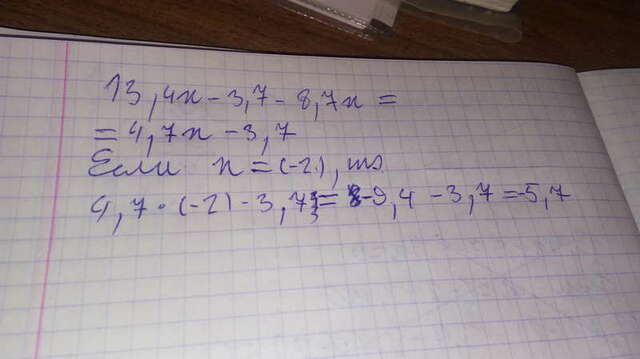 13,4x - 3,7 - 8,7x =
= 4,7x - 3,7
Если x = (-2), то
4,7 · (-2) - 3,7 = -9,4 - 3,7 = -5,7